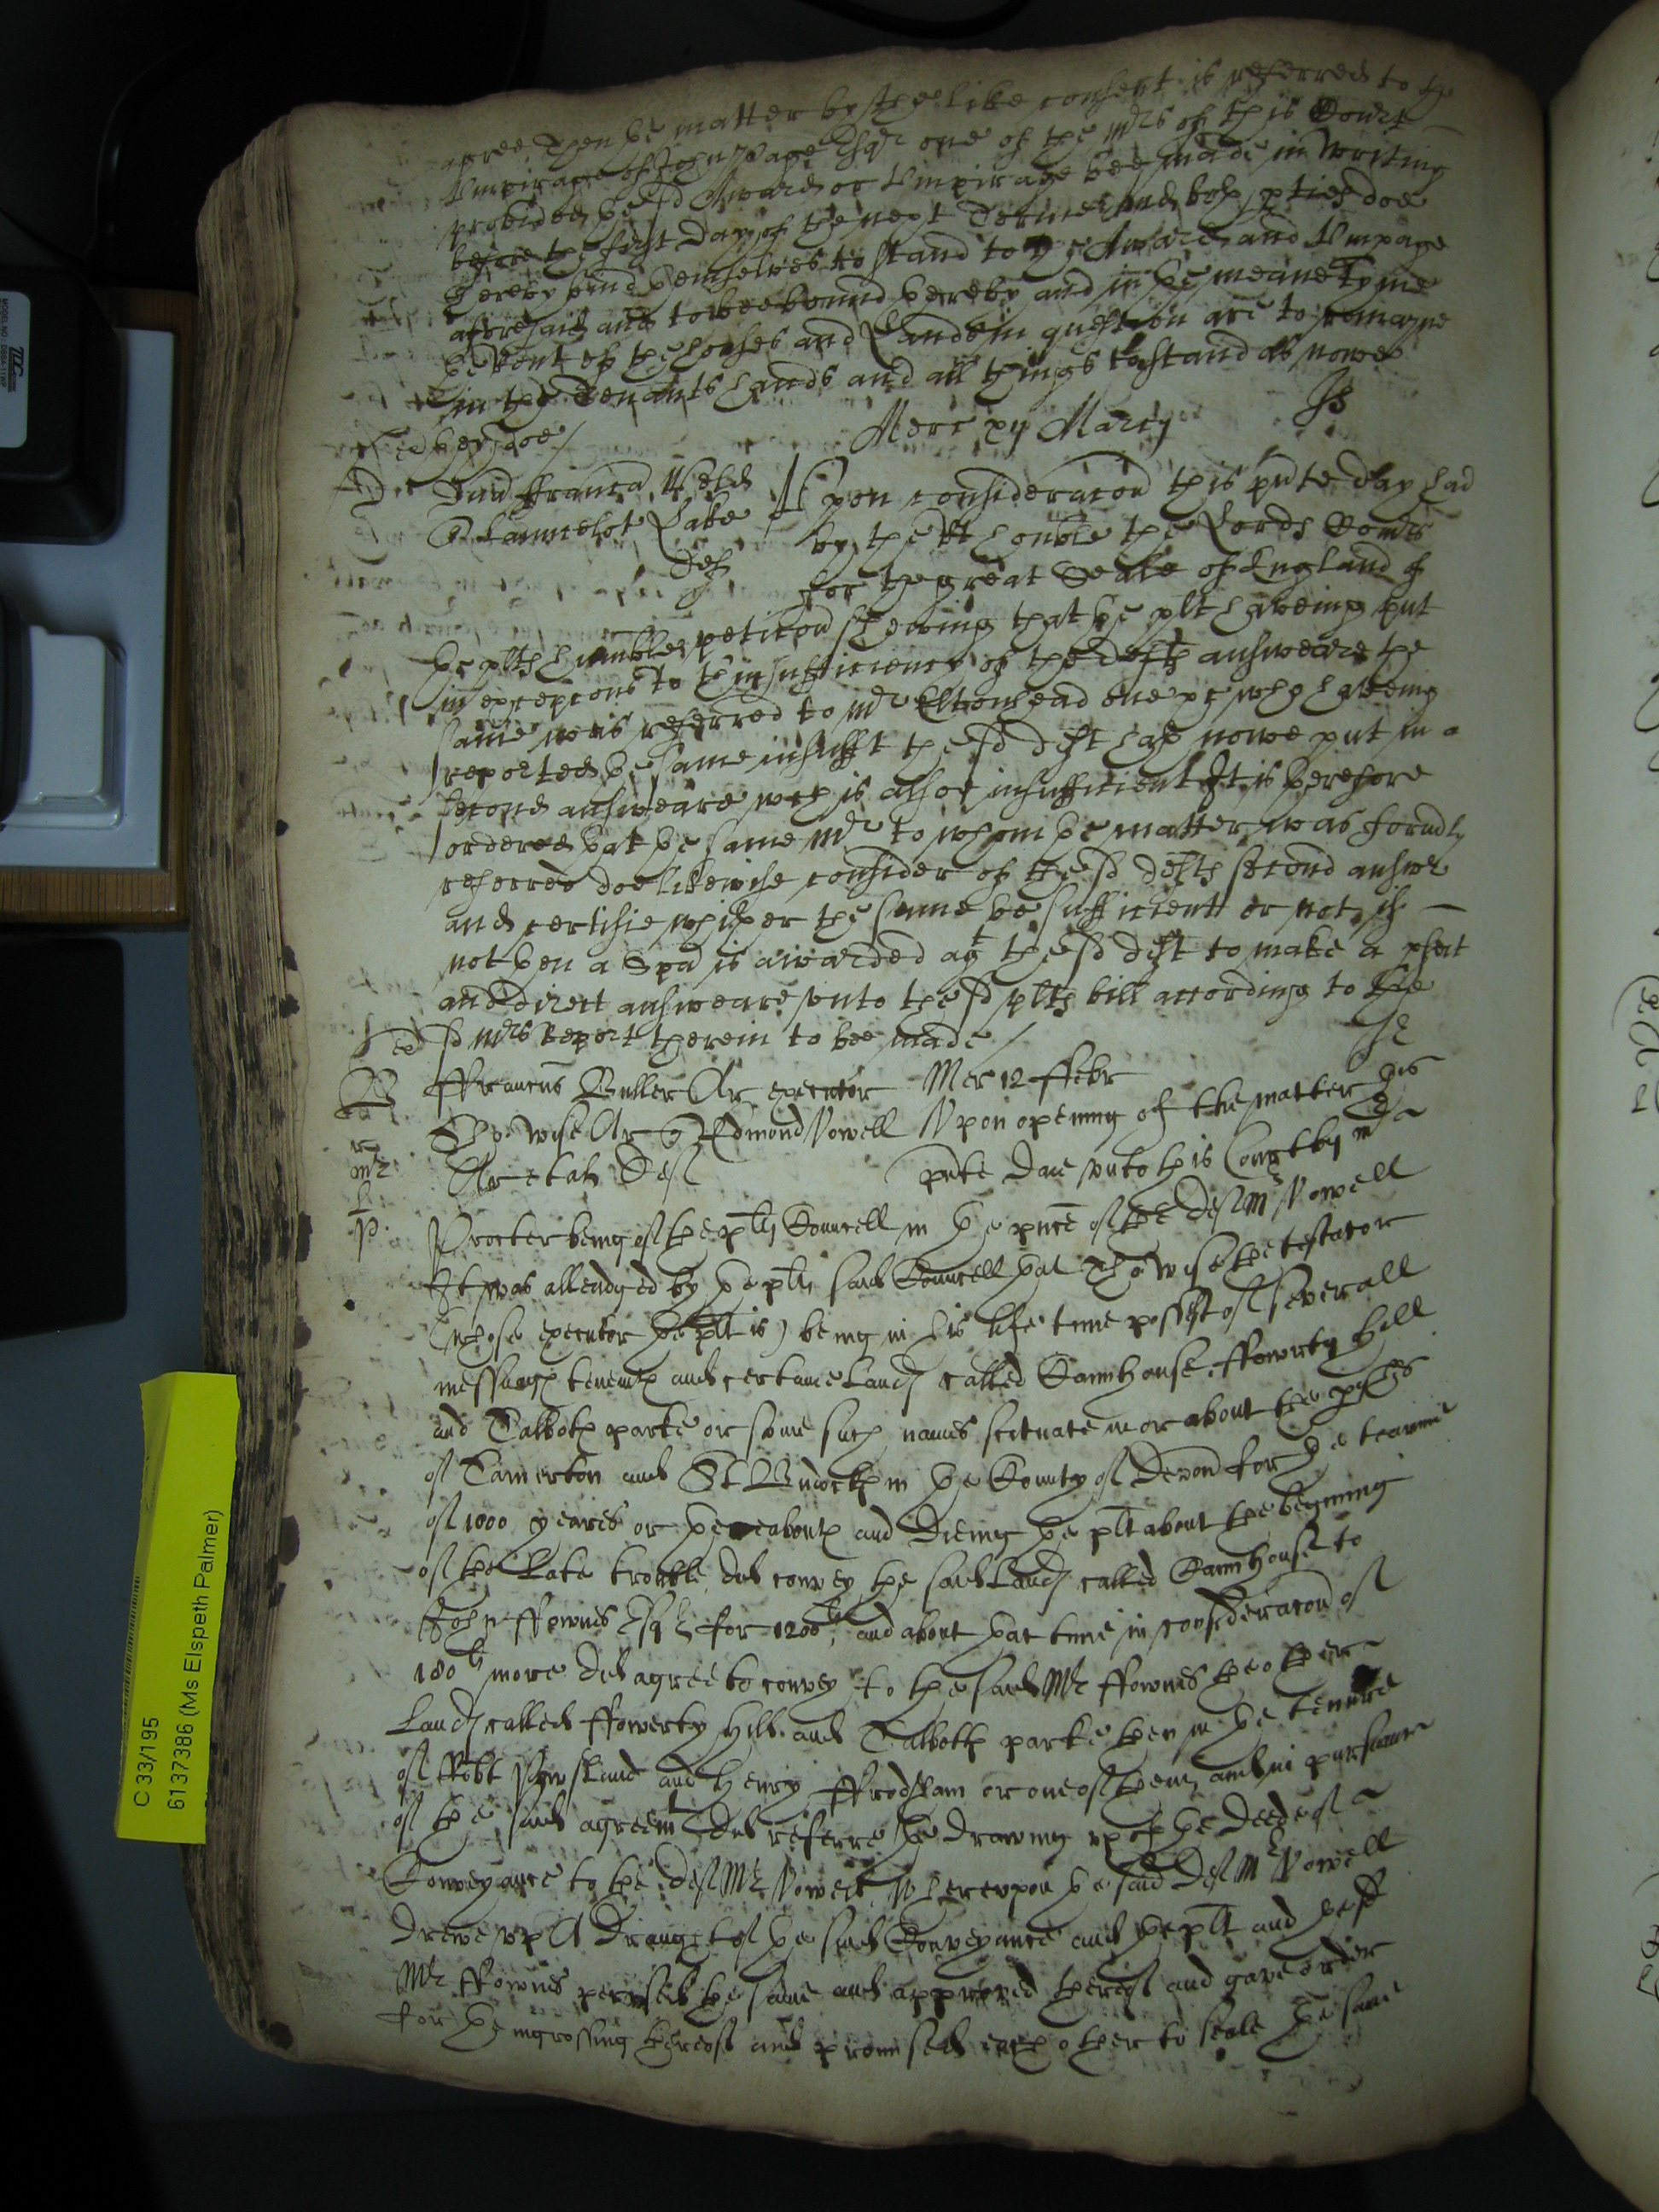 agree then the matter by the like consent is referred to the
Umpirage of John Page Esqr one of the Mrs of this Court
provided the sd Award or Umpirage bee made in writing
before the first day of the next Terme and both pties doe
hereby bind themselves to stand to the Award and Umpage
aforesaid and to bee bound thereby and in the meane tyme
the Rent of the houses and Lands in question are to remayne
in the Tenants hands and all things to stand as nowe
they doe /
Merc xij Marcij
Dna Franca Weld
Launcelot Lake
Def
Upon consideracon this pnte day had
by the Rt honble the Lords Comrs
for the great Seale of England of
the plts humble peticon shewing that the plt haveing put
in excepcons to th insufficiency of the defts answeare the
same was referred to Mr Eltonhead one &c who haveing
reported the same insufft the sd deft hath nowe put in a
second answeare wch is alsoe insufficient It is therefore
ordered that the same Mr to whom the matter was formrly
referred doe likewise consider of the sd defts second answr
and certifie whither the same be sufficient or not if
not then a Spa is awarded agt the sd deft to make a pfect
and direct answeare unto the sd plts bill according to the
sd Mrs Report therein to bee made /
ffrancus Buller Ar executor
Mer 12 ffebr
Tho Wise Ar Edmond Vowell
Ar et al Def
Upon opening of the matter this
pnte daie unto this Court by Mr
Procter being of the plts Councell in the pnce of the def Mr Vowell
It was alleadged by the plts said Councell that Tho Wise the testator
(whose executor the plt is) being in his life time possest of severall
messuages tenemts and certaine Lands called Cannhouse ffowerty hill
and Talbots parke or some such names scituate in or about the pishes
of Tamerton and St Budocks in the County of Devon for the tearme
of 1000 yeares or thereabouts and dieing the plt about the begining
of the late trouble did convey the said Lands called Cannhouse to
John ffownes Esqr for 1200li and about that time in consideracon of
180li more did agree to convey to the said Mr ffownes the other
Lands called ffowerty hill and Talbots parke then in the tenure
of Robt and Henry ffrodsham or one of them and in pursuance
of the said agreemt did referre the drawing up of the deede of
Conveyance to the def Mr Vowell Whereupon the said Def Mr Vowell
drewe up A draught of the said Conveyance and the plt and the sd
Mr ffownes perused the same and approved thereof and gave order
for the ingrossing thereof and promised each other to seale the same
C 33/195
6137386 (Ms Elspeth Palmer)